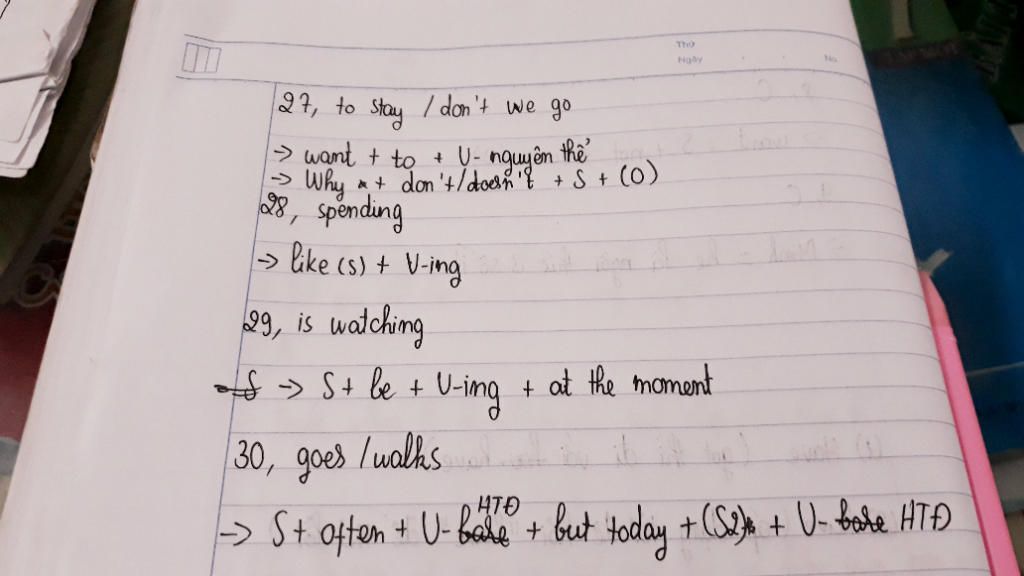 Thứ
Ngày No.
27, to stay / don't we go
-> want + to + V- nguyên thể
-> Why + don't/doesn't + S + (O)
28, spending
-> like (s) + V-ing
29, is watching
-> S + be + V-ing + at the moment
30, goes / walks
-> S + often + V- bare HTĐ + but today + (S2) + V- bare HTĐ